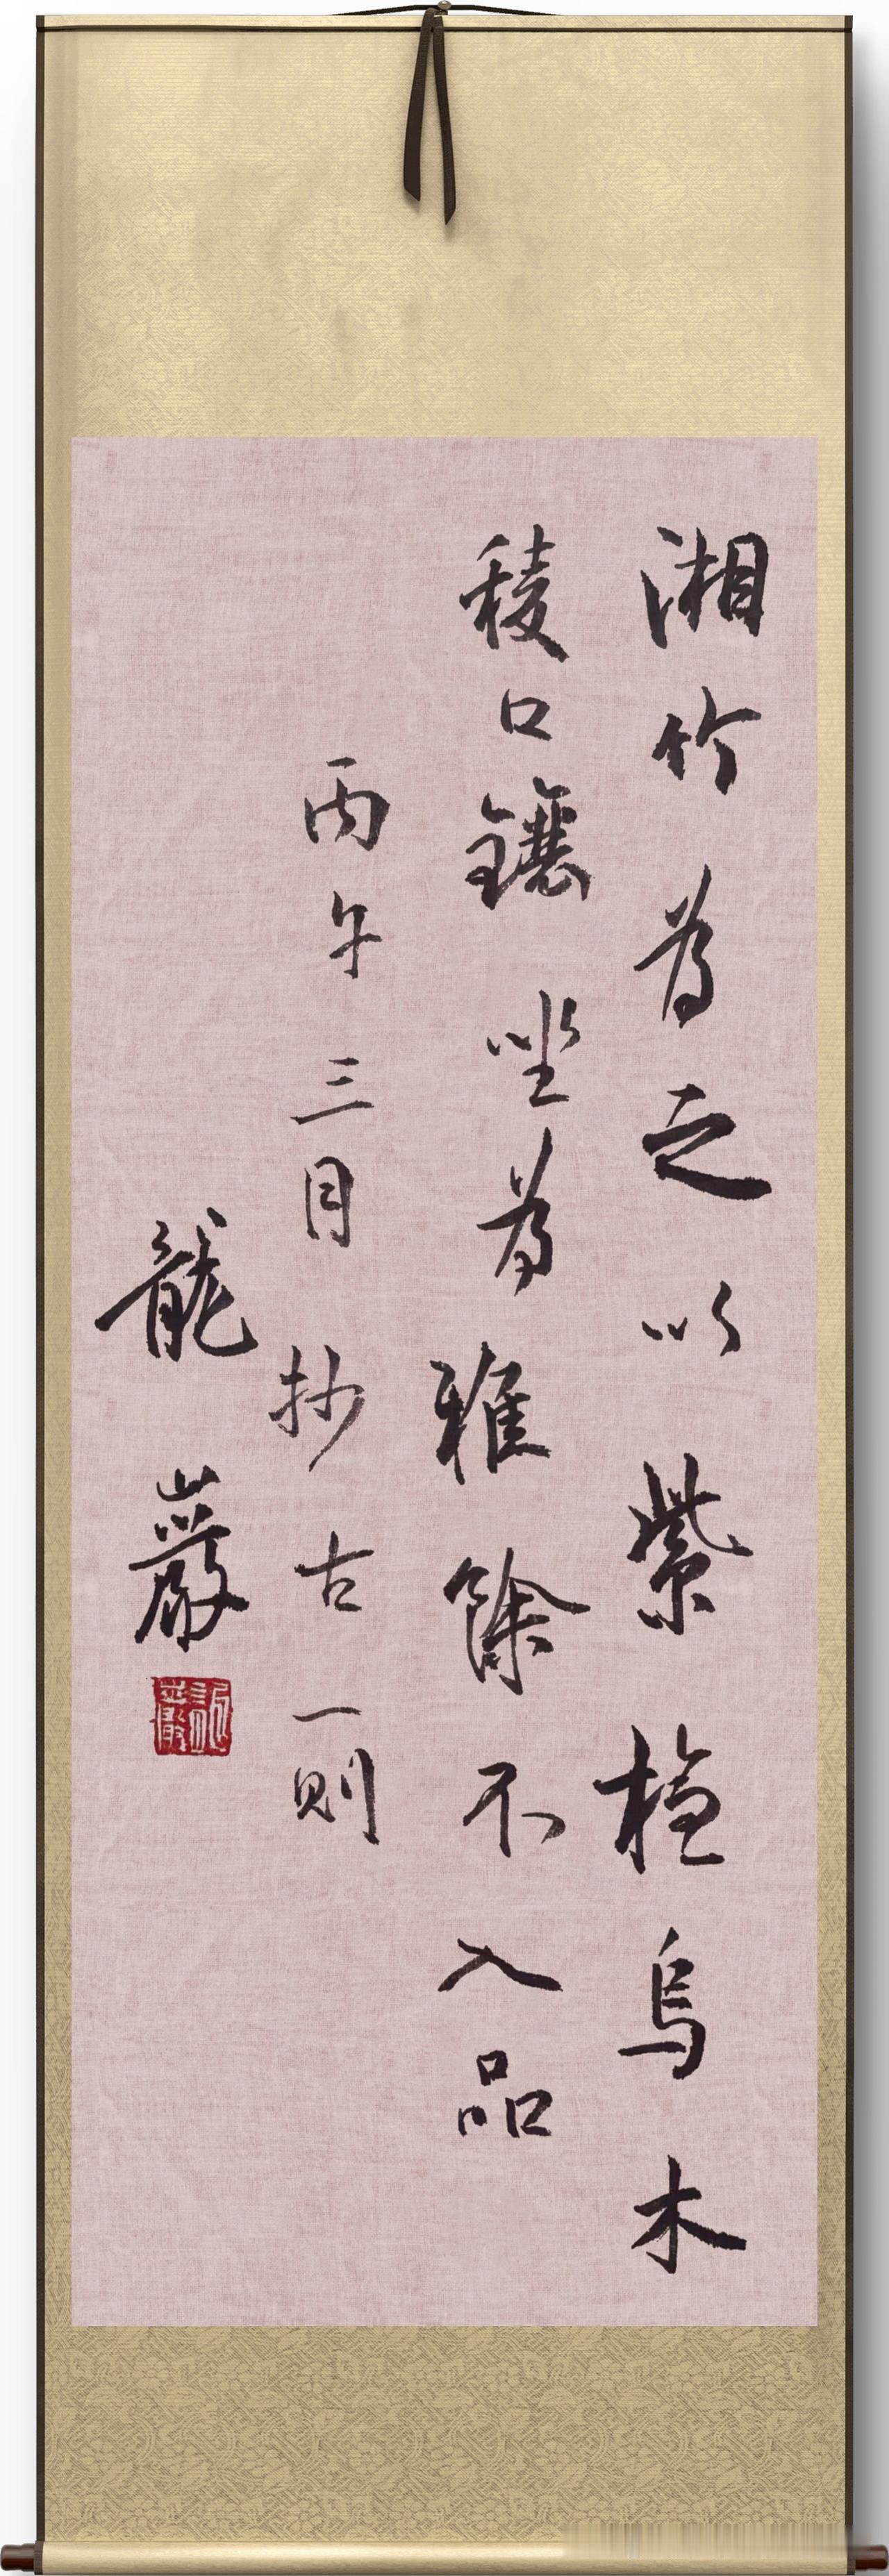 湘竹為之以紫檀烏木
稜口鑲坐為雅餘不入品
丙午三月抄古一則
龍巖
龍巖